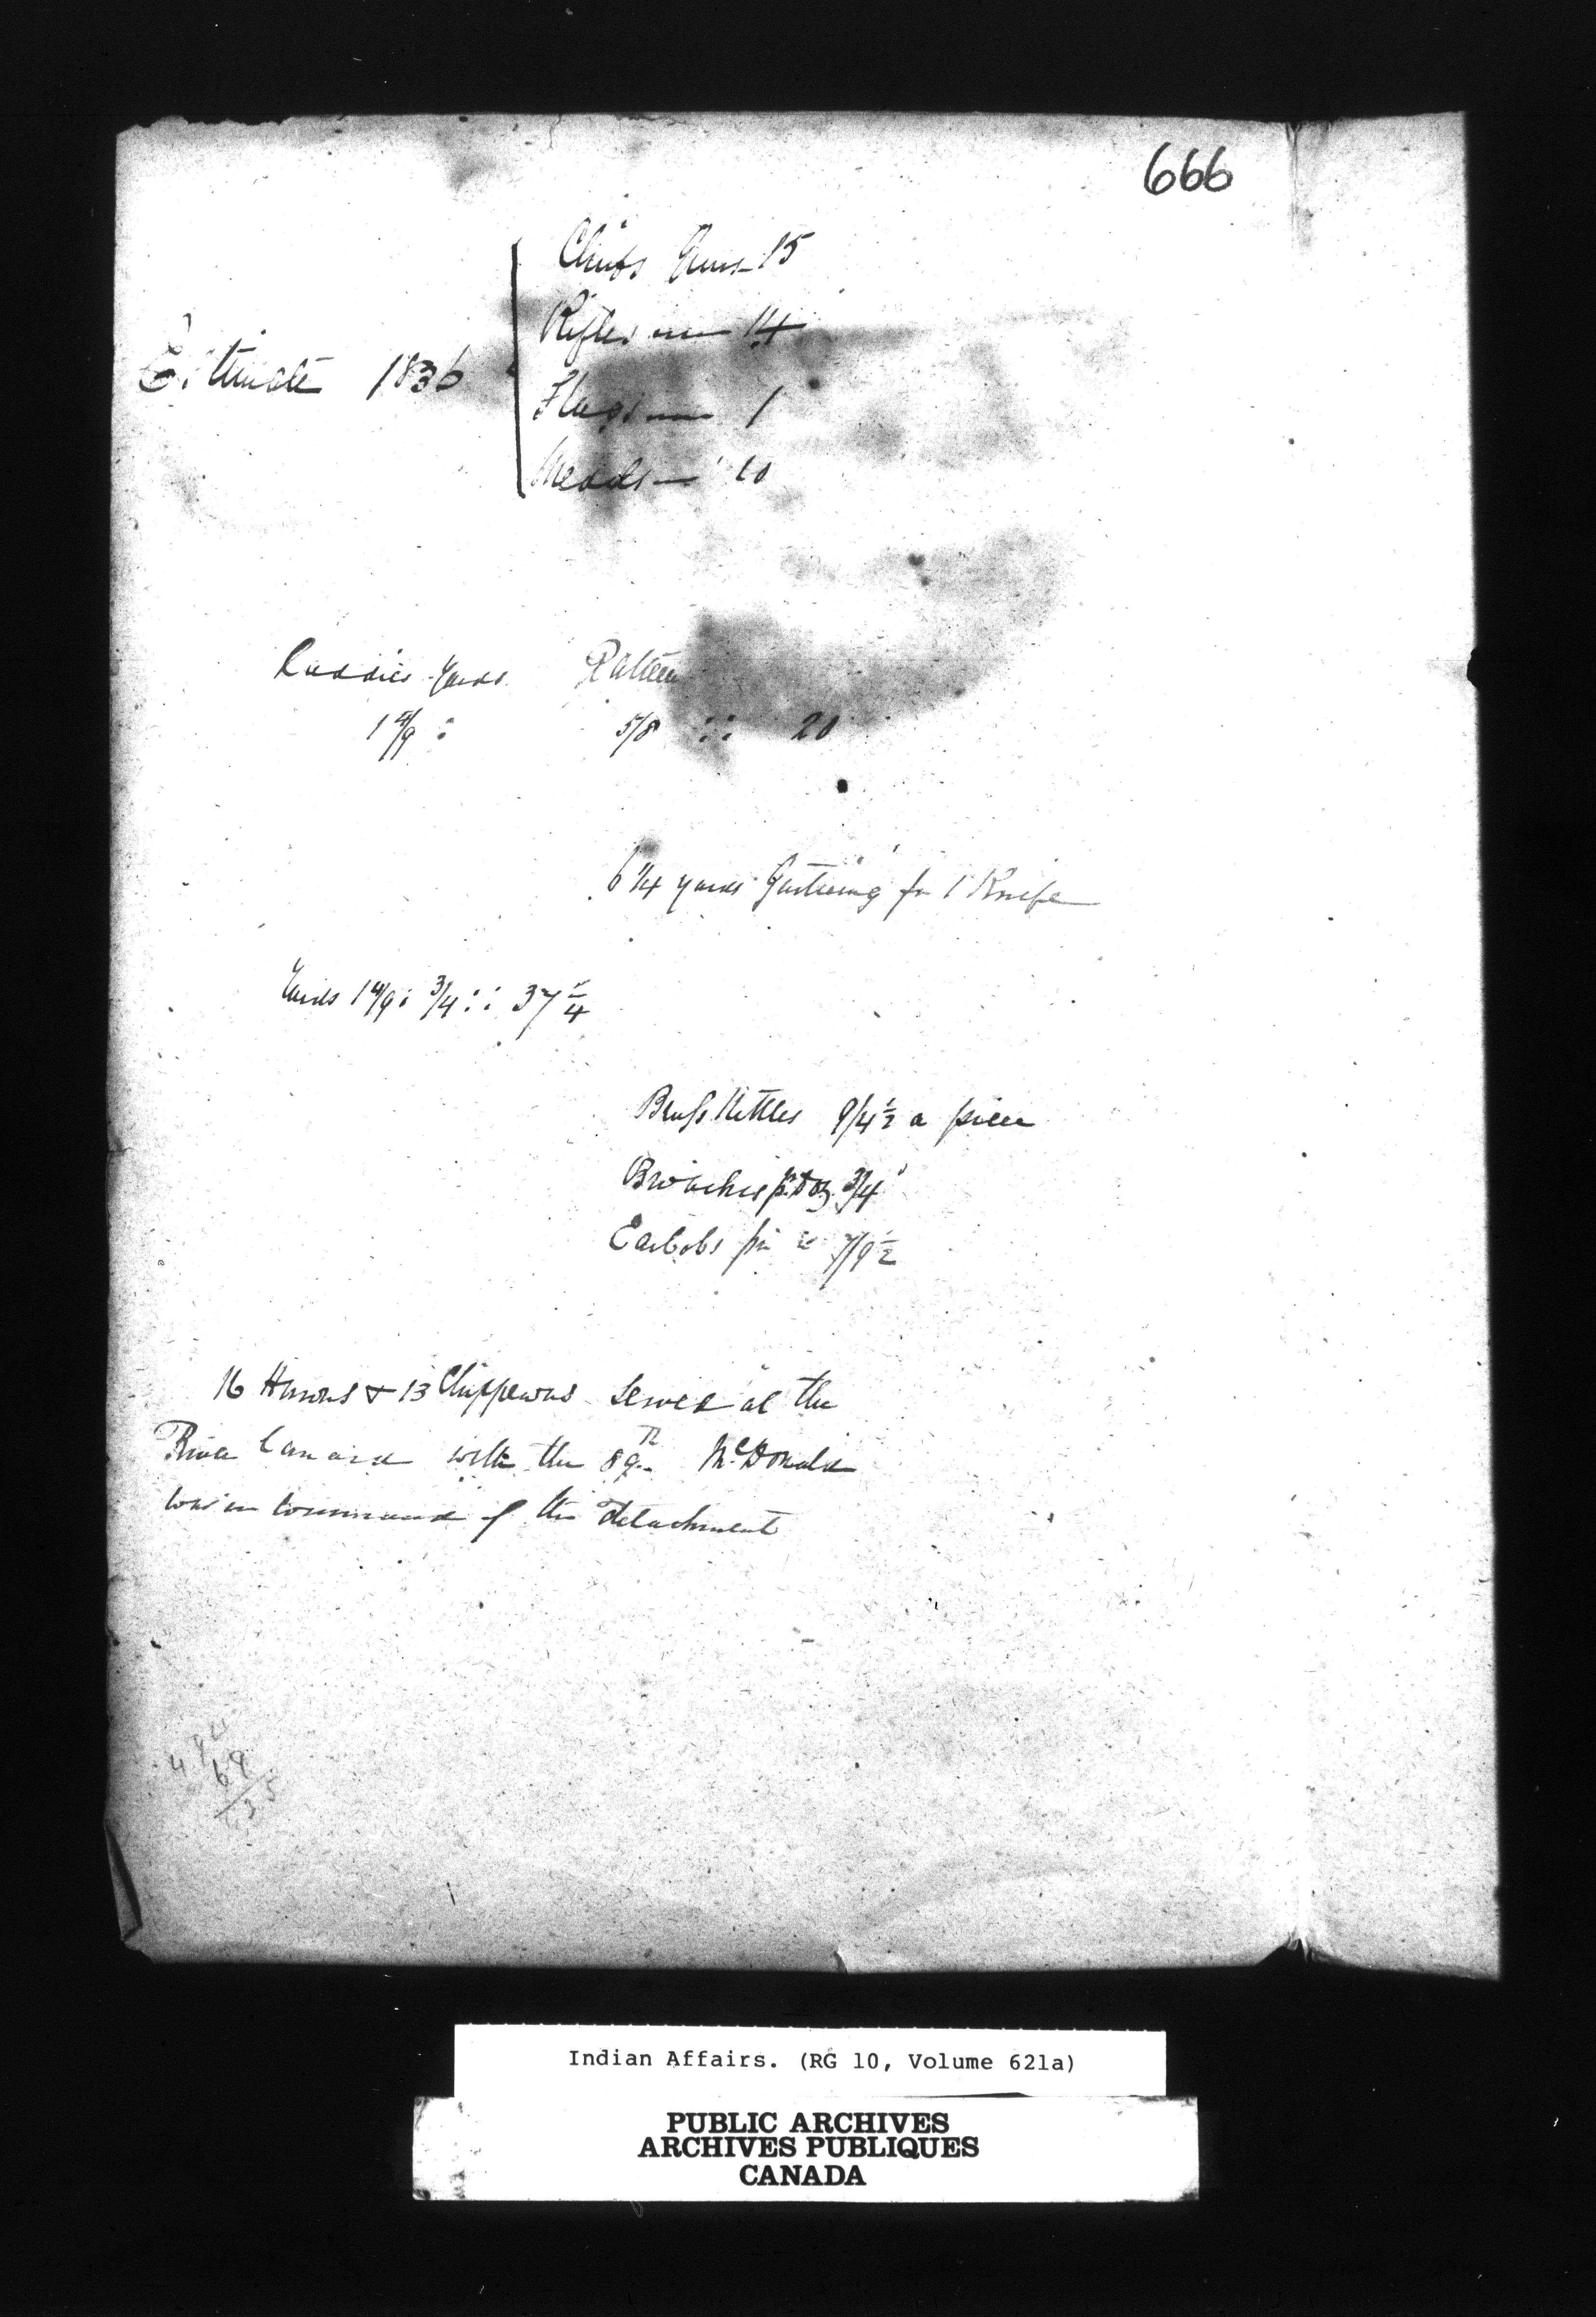 666
Chiefs Guns 15
Rifles 14
Estimate 1836
Flags 1
Medals 10
Caddies Yards Ratteen
1 4/9 : 5/8 :: 20
6 1/4 yards Gartering for 1 Knife
Yards 1 4/9 : 3/4 :: 37 1/4
Brass Kettles 9/4½ a piece
Broaches pr doz 3/4
Earbobs pr " 7/9½
16 Hurons & 13 Chippewas served at the
River Canard with the 89th McDonald
was in command of the detachment
69
Indian Affairs. (RG 10, Volume 621a)
PUBLIC ARCHIVES
ARCHIVES PUBLIQUES
CANADA